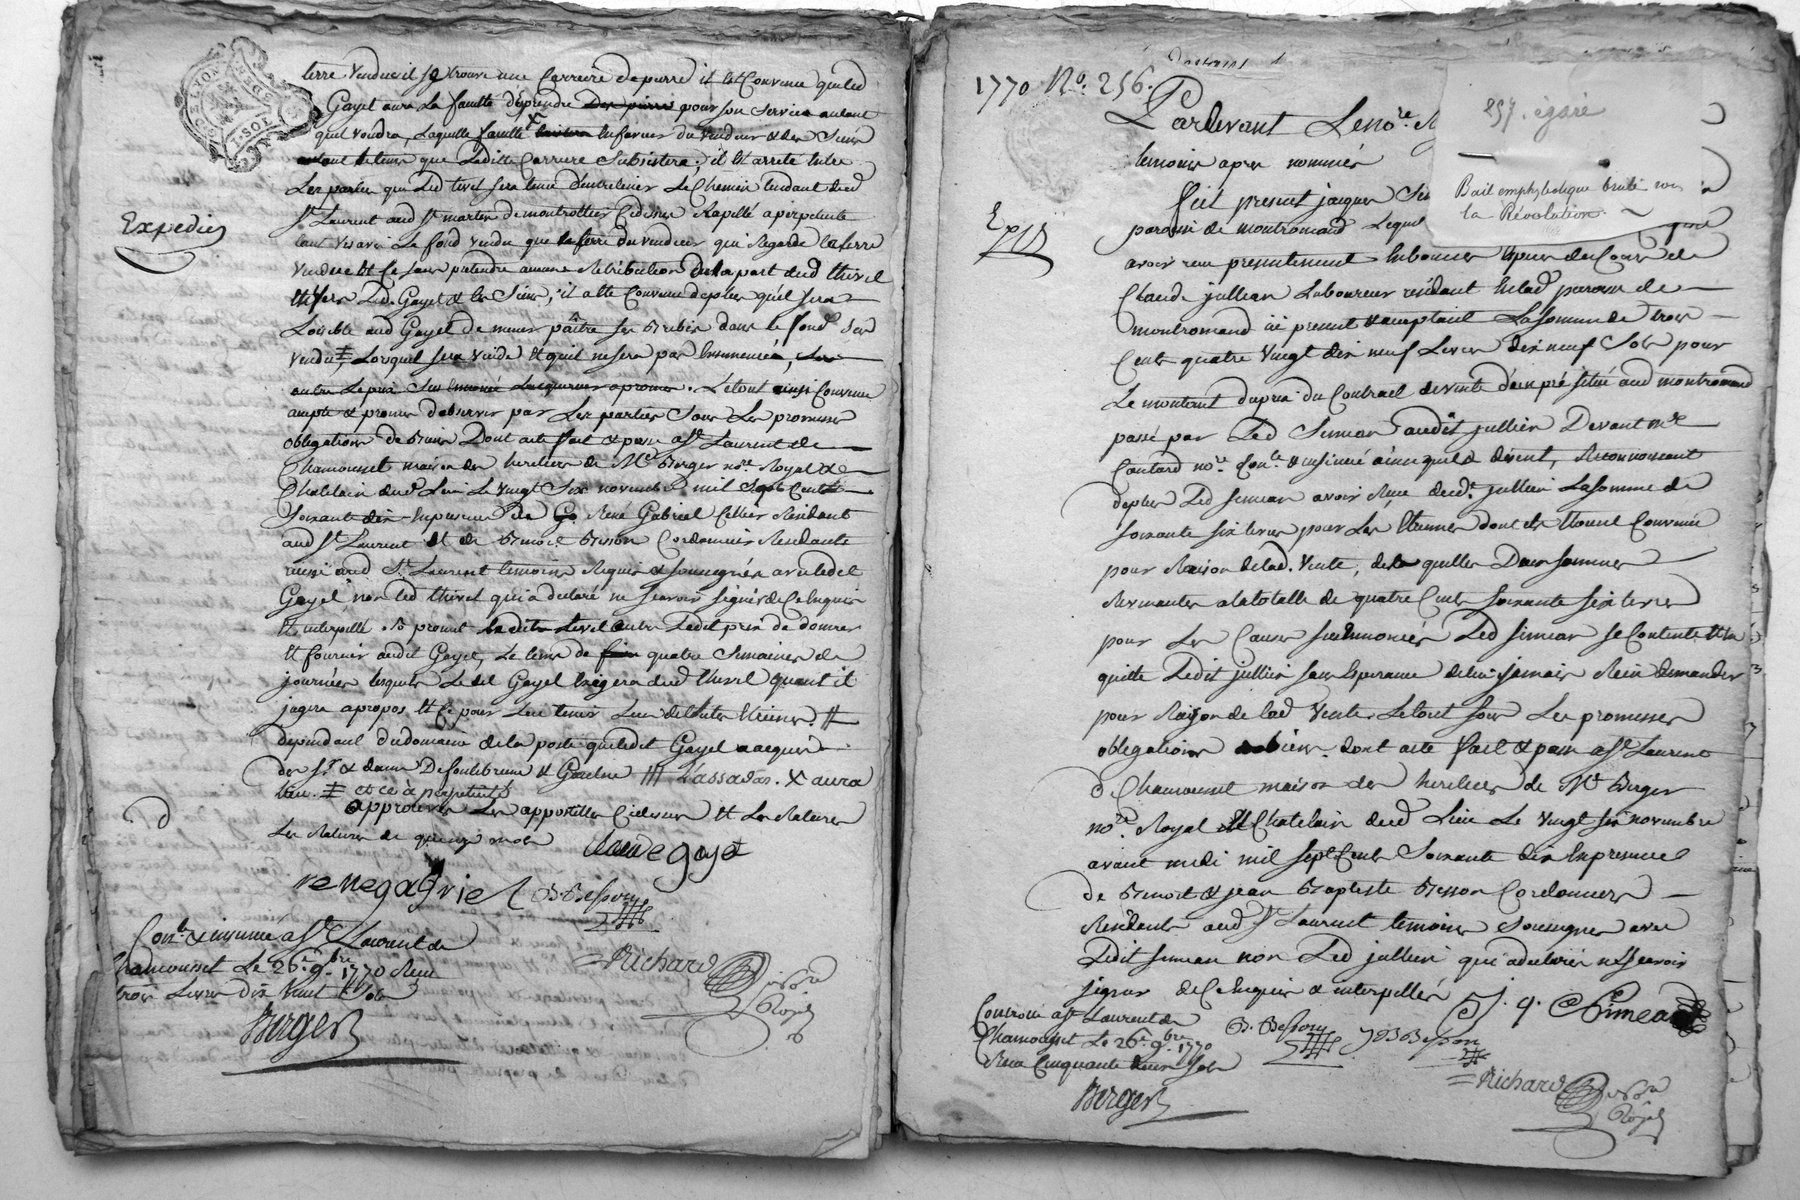 terre vendue il se trouve une Carriere de pierre il est Convenu que led
Gayet aura La faculté d'éprendre des pierres pour son Service autant
quil voudra, Laquelle faculté X en faveur du vendeur & des Siens
autant de tems que Laditte Carriere Subsistera; il Et arreté Entre
Les parties que Led tivet sera tenu d'entretenir Le Chemin tendant dud
St Laurent aud St martin de montrottier Cidessus Rapellé a perpetuité
tant vis avis Le fond vendu que la terre du vendeur qui Regarde la terre
vendue Et Ce sans pretendre aucune Retribution de la part dud thivel
Led. Gayet & les Siens, il a Eté Convenu de plus quil sera
Loisible aud Gayet de mener paître ses Brebis dans le fond Sus
vendu ‡ Lorsquil sera vuide Et quil ne sera pas Ensemencé,
Le tout ainsi Convenu
accepté & promis d'observer par Les parties Sous Les promesses
obligations de Biens Dont acte fait & passé a St Laurent de
Chamousset maison des heritiers de Me Berger nore Royal &
Chatelain dud Lieu Le vingt Six novembre mil Sept Cent
Soixante dix En presence de René Gabriel Cellier Residant
aud St Laurent Et de Benoit Besson Cordonnier Residant
aussi aud St Laurent temoins Requis & soussignés avec ledit
Gayet, non led thivel qui a declaré ne scavoir signer de Ce Enquis
Et interpellé. & promet ledit tivel outre Ledit prix de donner
Et fournir audit Gayet, Le tems de quatre Semaines de
journées lesquelles Ledit Gayet Exigera dud thivel quant il
jugera apropos Et Ce pour Lui tenir Lieu
dependant du domaine de la poste que ledit Gayet a acquis
des Sr & dame
lieu. ‡ et ce à perpetuité
approuvés Les appostilles Cidessus Et Les Ratures
Les Ratures de quinze mots
Expedié
claude gayet
rene gabriel
B. Besson
Richard
nore
Royal
Conlé & insinué a St Laurent de
Chamousset Le 26e 9bre 1770 Reçu
trois Livres dix huit Sols
Berger
1770 No. 256.
Pardevant Le nore
temoins apres nommés
fut present jacques
paroisse de montromand Lequel
avoir reçu presentement En bonnes Especes du Cours de
Claude jullien Laboureur residant En lad paroisse de
montromand ici present & acceptant La Somme de trois
Cents quatre vingt dix neuf Livres dix neuf Sols pour
Le montant du prix du Contract de vente d'un pré situé aud montromand
passé par Led Simean audit jullien Devant Me
Coutard nore Conlé & insinué ainsi quils disent, Reconnoissant
de plus Led simean avoir Reçu dud. jullien La Somme de
soixante six livres pour Les Etrennes dont ils Etoient Convenus
pour Raison de lad. vente, desquelles Deux sommes
Revenantes a la totalle de quatre Cents soixante six livres
pour Les Causes susEnoncées Led simean se Contente Et en
quitte Ledit jullien sans Esperance de lui jamais Rien demander
pour Raison de lad vente. Le tout sous Les promesses
obligations de biens dont acte fait & passé a St Laurent
de Chamousset maison des heritiers de Me Berger
nore. Royal Et Chatelain dud Lieu Le vingt six novembre
avant midi mil Sept Cents Soixante dix En presence
de Benoit & jean Baptiste Besson Cordonniers
Residants aud St Laurent temoins Soussignés avec
Ledit simean non Led jullien qui a declaré ne Scavoir
signer de Ce Enquis & interpellé
Simean
B. Besson
JB Besson
Richard
nore
Royal
Controllé a St Laurent de
Chamousset Le 26e 9bre 1770
Reçu Cinquante deux sols
Berger
257. égaré
Bail emphytéotique brulé
la Révolution.